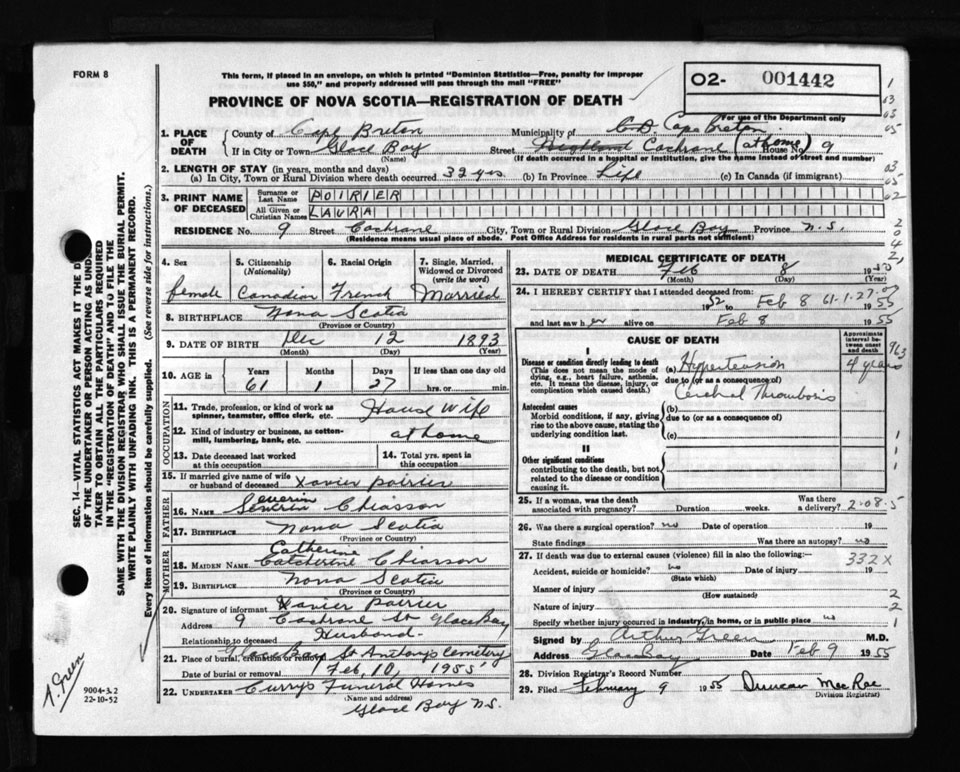 FORM 8
This form, if placed in an envelope, on which is printed "Dominion Statistics—Free, penalty for improper
use $50," and properly addressed will pass through the mail "FREE"
O2- 001442
For use of the Department only
PROVINCE OF NOVA SCOTIA—REGISTRATION OF DEATH
1. PLACE OF DEATH
County of Cape Breton Municipality of C.B. Cape Breton
If in City or Town Glace Bay Street Cochrane (at home) House No. 9
(Name) (If death occurred in a hospital or institution, give the name instead of street and number)
2. LENGTH OF STAY (in years, months and days)
(a) In City, Town or Rural Division where death occurred 32 yrs (b) In Province Life (c) In Canada (if immigrant)
3. PRINT NAME OF DECEASED
Surname or Last Name POIRIER
All Given or Christian Names LAURA
RESIDENCE No. 9 Street Cochrane City, Town or Rural Division Glace Bay Province N.S.
(Residence means usual place of abode. Post Office Address for residents in rural parts not sufficient)
4. Sex female
5. Citizenship (Nationality) Canadian
6. Racial Origin French
7. Single, Married, Widowed or Divorced (write the word) Married
8. BIRTHPLACE Nova Scotia
(Province or Country)
9. DATE OF BIRTH Dec 12 1893
(Month) (Day) (Year)
10. AGE in Years Months Days If less than one day old
61 1 27 hrs. or min.
OCCUPATION
11. Trade, profession, or kind of work as spinner, teamster, office clerk, etc. House wife
12. Kind of industry or business, as cotton-mill, lumbering, bank, etc. at home
13. Date deceased last worked at this occupation
14. Total yrs. spent in this occupation
15. If married give name of wife or husband of deceased Xavier Poirier
FATHER
Severin
16. NAME Severin Chiasson
17. BIRTHPLACE Nova Scotia
(Province or Country)
MOTHER
Catherine
18. MAIDEN NAME Catherine Chiasson
19. BIRTHPLACE Nova Scotia
(Province or Country)
20. Signature of informant Xavier Poirier
Address 9 Cochrane St Glace Bay
Relationship to deceased Husband
21. Place of burial, cremation or removal Glace Bay St Anthonys Cemetery
Date of burial or removal Feb, 10, 1955
22. UNDERTAKER Currys Funeral Homes
(Name and address)
Glace Bay N.S.
MEDICAL CERTIFICATE OF DEATH
23. DATE OF DEATH Feb 8 1955
(Month) (Day) (Year)
24. I HEREBY CERTIFY that I attended deceased from:
1952 to Feb 8 1955
61-1-27
and last saw her alive on Feb 8 1955
CAUSE OF DEATH
Approximate interval between onset and death
I
Disease or condition directly leading to death
(This does not mean the mode of dying, e.g., heart failure, asthenia, etc. It means the disease, injury, or complication which caused death.)
(a) Hypertension 4 years
due to (or as a consequence of)
Cerebral Thrombosis
Antecedent causes
Morbid conditions, if any, giving rise to the above cause, stating the underlying condition last.
(b)
due to (or as a consequence of)
(c)
II
Other significant conditions
contributing to the death, but not related to the disease or condition causing it.
25. If a woman, was the death associated with pregnancy? Duration weeks. Was there a delivery?
2-08-5
26. Was there a surgical operation? no Date of operation 19
State findings Was there an autopsy? no
27. If death was due to external causes (violence) fill in also the following:—
332X
Accident, suicide or homicide? no Date of injury 19
(State which)
Manner of injury
(How sustained)
Nature of injury
Specify whether injury occurred in industry, in home, or in public place no
Signed by Arthur Green M.D.
Address Glace Bay Date Feb 9 1955
28. Division Registrar's Record Number
29. Filed February 9 1955 Duncan MacRae
Division Registrar)
SEC. 14—VITAL STATISTICS ACT MAKES IT THE
OF THE UNDERTAKER OR PERSON ACTING AS UNDER-
TAKER TO OBTAIN ALL THE PARTICULARS REQUIRED
IN THE "REGISTRATION OF DEATH" AND TO FILE THE
SAME WITH THE DIVISION REGISTRAR WHO SHALL ISSUE THE BURIAL PERMIT.
WRITE PLAINLY WITH UNFADING INK. THIS IS A PERMANENT RECORD.
Every item of information should be carefully supplied. (See reverse side for instructions.)
A. Green
9004-3.2
22-10-52